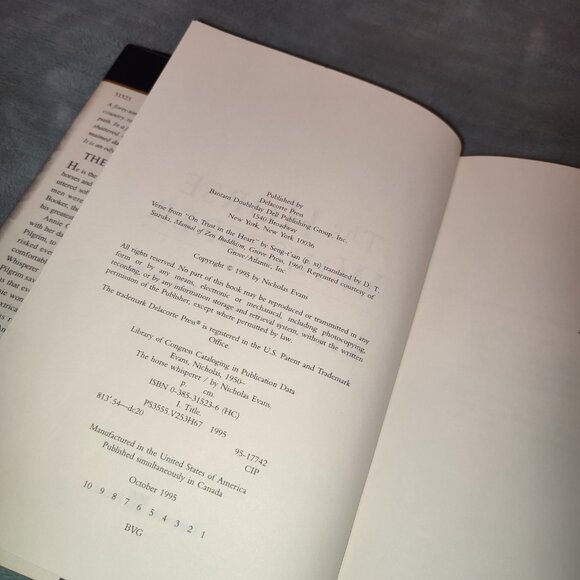 31523
A forty-ton
country ro
path. In a f
shattered.
maimed da
It is an ody
THE
He is the
horses and
uttered sof
men were
Booker, the
his greatest
Annie G
with her da
Pilgrim, to
risked ever
comfortably
Whisperer
Pilgrim sav
as that exi
Published by
Delacorte Press
Bantam Doubleday Dell Publishing Group, Inc.
1540 Broadway
New York, New York 10036
Verse from "On Trust in the Heart" by Seng-t'san (p. vi) translated by D. T.
Suzuki, Manual of Zen Buddhism, Grove Press, 1960. Reprinted courtesy of
Grove/Atlantic, Inc.
Copyright © 1995 by Nicholas Evans
All rights reserved. No part of this book may be reproduced or transmitted in any
form or by any means, electronic or mechanical, including photocopying,
recording, or by any information storage and retrieval system, without the written
permission of the Publisher, except where permitted by law.
The trademark Delacorte Press® is registered in the U.S. Patent and Trademark
Office.
Library of Congress Cataloging in Publication Data
Evans, Nicholas, 1950–
The horse whisperer / by Nicholas Evans.
p. cm.
ISBN 0-385-31523-6 (HC)
I. Title.
PS3555.V253H67 1995
813'.54—dc20 95-17742
CIP
Manufactured in the United States of America
Published simultaneously in Canada
October 1995
10 9 8 7 6 5 4 3 2 1
BVG